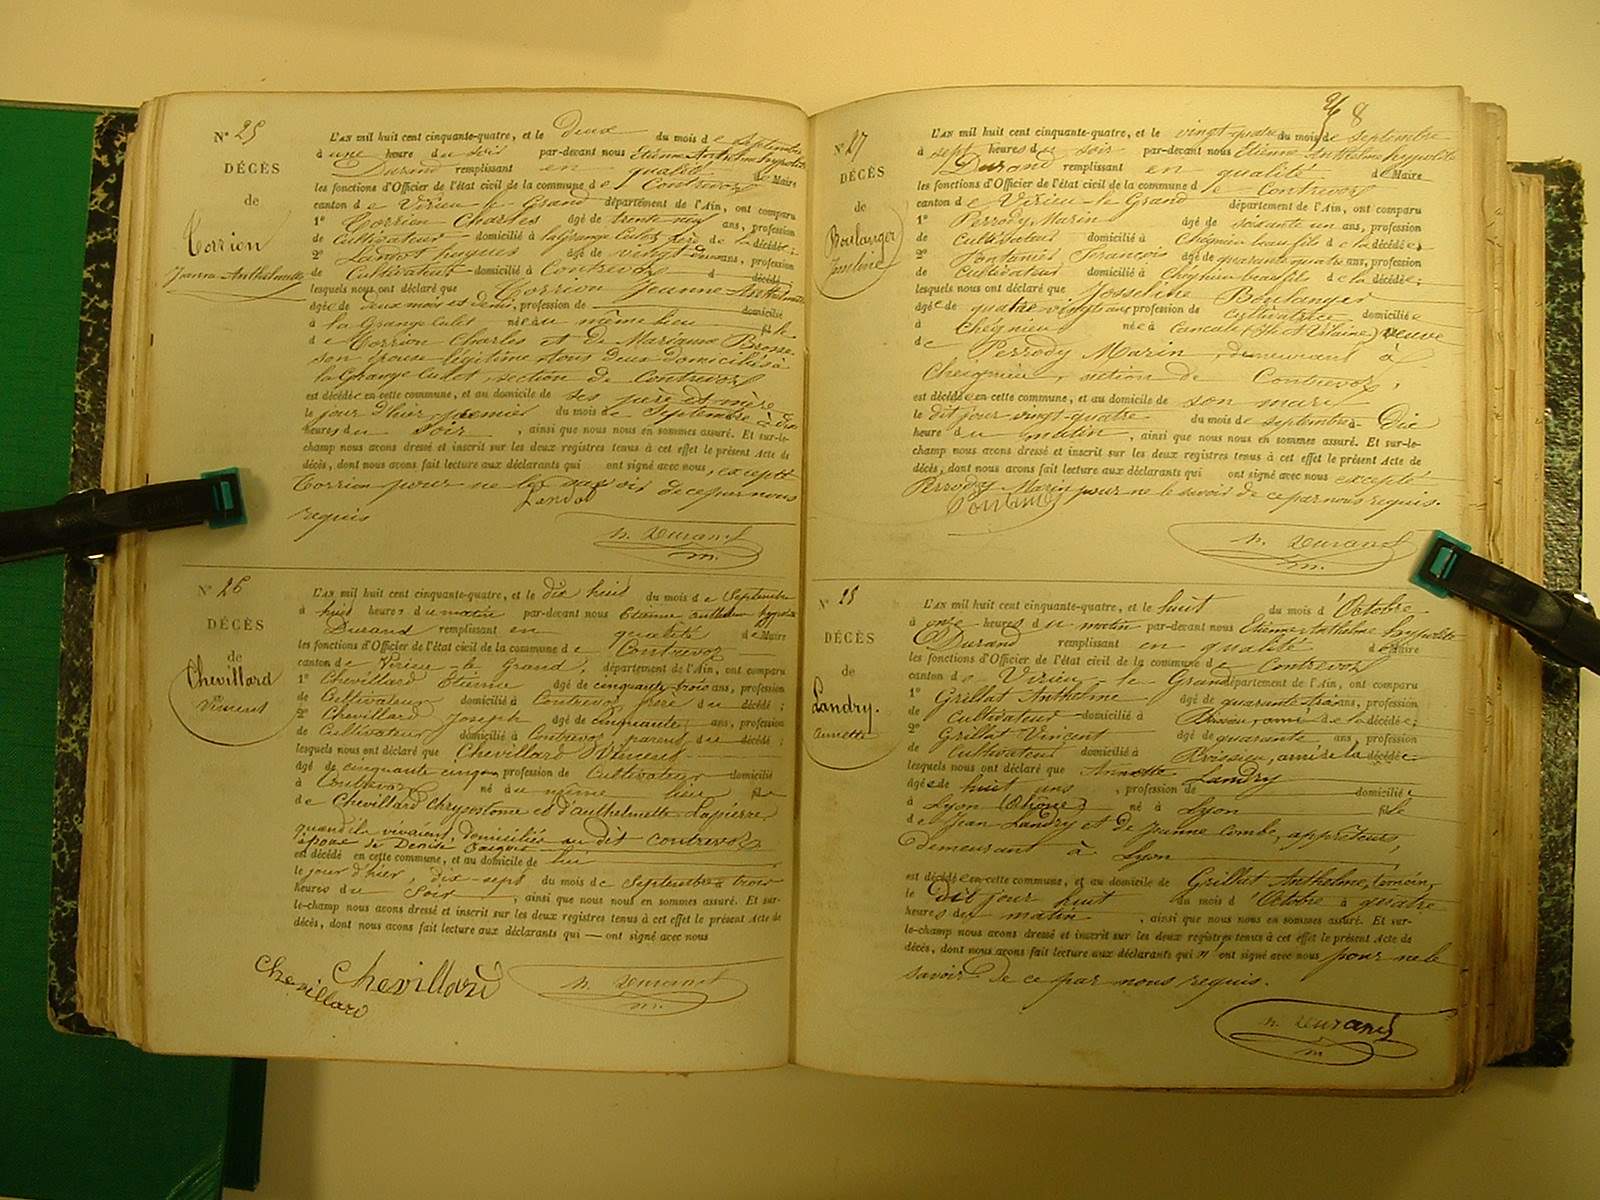 N° 25
DÉCÈS
de
Corrion
Jeanne-Anthelmette
L'AN mil huit cent cinquante-quatre, et le deux du mois de septembre
à une heure du soir par-devant nous Etienne Anthelme hypolite
Durand remplissant en qualité de Maire
les fonctions d'Officier de l'état civil de la commune de Contrevoz
canton de Virieu-le-Grand département de l'Ain, ont comparu
1° Corrion Charles âgé de trente neuf ans, profession
de Cultivateur domicilié à lagrange Culet, père de la décédée;
2° Landot hugues âgé de vingt ans, profession
de Cultivateur domicilié à Contrevoz d décédé
lesquels nous ont déclaré que Corrion Jeanne Anthelmette
âgée de deux mois et demi, profession de domiciliée
à la Grange Culet née au même lieu fille
de Corrion Charles et de Marianne Brosse
son épouse légitime, tous deux domiciliés à
la Grange Culet, section de Contrevoz
est décédée en cette commune, et au domicile de ses père et mère
le jour d'hier premier du mois de Septembre à dix
heures du soir, ainsi que nous nous en sommes assuré. Et sur-le-
champ nous avons dressé et inscrit sur les deux registres tenus à cet effet le présent Acte de
décès, dont nous avons fait lecture aux déclarants qui ont signé avec nous, excepté
Corrion pour ne le savoir de ce par nous
requis
Landot
h. Durand
m.
N° 26
DÉCÈS
de
Chevillard
Vincent
L'AN mil huit cent cinquante-quatre, et le dix huit du mois de Septembre
à huit heures du matin par-devant nous Etienne anthelme hypolite
Durand remplissant en qualité de Maire
les fonctions d'Officier de l'état civil de la commune de Contrevoz
canton de Virieu-le-Grand, département de l'Ain, ont comparu
1° Chevillard Etienne âgé de cinquante-trois ans, profession
de Cultivateur domicilié à Contrevoz frère du décédé;
2° Chevillard Joseph âgé de cinquante ans, profession
de Cultivateur domicilié à Contrevoz parent du décédé;
lesquels nous ont déclaré que Chevillard Vincent
âgé de cinquante cinq ans profession de Cultivateur domicilié
à Contrevoz né au même lieu fils
de Chevillard chrysostome et d'anthelmette Lapierre,
quand ils vivaient, domiciliés au dit Contrevoz
époux de Denise
est décédé en cette commune, et au domicile de lui
le jour d'hier, dix-sept du mois de Septembre à trois
heures du Soir, ainsi que nous nous en sommes assuré. Et sur-
le-champ nous avons dressé et inscrit sur les deux registres tenus à cet effet le présent Acte de
décès, dont nous avons fait lecture aux déclarants qui — ont signé avec nous
Chevillard
Chevillard
h. Durand
m.
8
N° 27
DÉCÈS
de
Boulanger
Josseline
L'AN mil huit cent cinquante-quatre, et le vingt-quatre du mois de septembre
à sept heures du soir par-devant nous Etienne Anthelme hypolite
Durand remplissant en qualité de Maire
les fonctions d'Officier de l'état civil de la commune de Contrevoz
canton de Virieu-le-Grand département de l'Ain, ont comparu
1° Perrody Marin âgé de soixante un ans, profession
de Cultivateur domicilié à Cheignieu beau fils de la décédée;
2° Pontanier François âgé de quarante quatre ans, profession
de Cultivateur domicilié à Cheignieu beau fils de la décédée;
lesquels nous ont déclaré que Josseline Boulanger
âgée de quatre vingt ans profession de Cultivatrice domiciliée
à Cheignieu née à Cancale (Ille et Vilaine) veuve
de Perrody Marin, demeurant à
Cheignieu, section de Contrevoz,
est décédée en cette commune, et au domicile de son mari
le dit jour vingt-quatre du mois de septembre à Dix
heure du matin, ainsi que nous nous en sommes assuré. Et sur-le-
champ nous avons dressé et inscrit sur les deux registres tenus à cet effet le présent Acte de
décès, dont nous avons fait lecture aux déclarants qui ont signé avec nous excepté
Perrody Marin pour ne le savoir de ce par nous requis.
h. Durand
m.
N° 28
DÉCÈS
de
Landry.
annette
L'AN mil huit cent cinquante-quatre, et le huit du mois d'Octobre
à onze heures du matin par-devant nous Etienne Anthelme hypolite
Durand remplissant en qualité de Maire
les fonctions d'Officier de l'état civil de la commune de Contrevoz
canton de Virieu-le-Grand département de l'Ain, ont comparu
1° Grillat Anthelme âgé de quarante-trois ans, profession
de Cultivateur domicilié à Boissieu, ami de la décédée;
2° Grillat Vincent âgé de quarante ans, profession
de Cultivateur domicilié à Boissieu, ami de la décédée
lesquels nous ont déclaré que Annette Landry
âgée de huit ans, profession de domiciliée
à Lyon (Rhône) né à Lyon fille
de Jean Landry et de Jeanne Combe, apprêteurs,
demeurant à Lyon
est décédée en cette commune, et au domicile de Grillat Anthelme, témoin,
le Dit jour huit du mois d'Octobre à quatre
heures du matin, ainsi que nous nous en sommes assuré. Et sur-
le-champ nous avons dressé et inscrit sur les deux registres tenus à cet effet le présent Acte de
décès, dont nous avons fait lecture aux déclarants qui n'ont signé avec nous pour ne le
savoir de ce par nous requis.
h. Durand
m